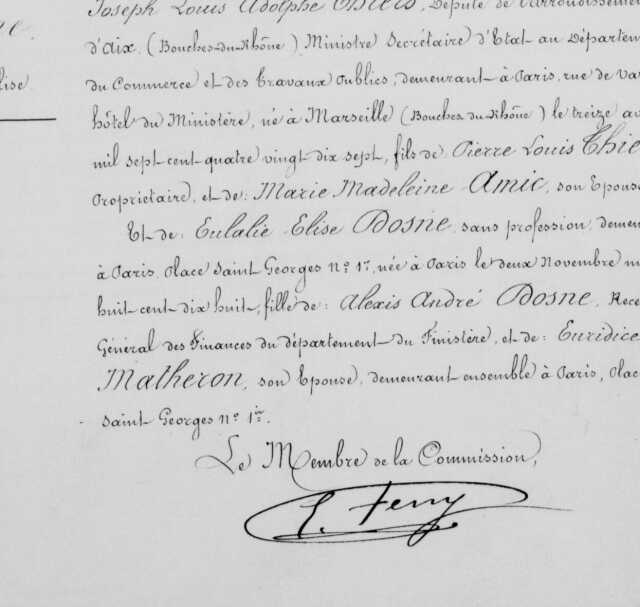 ne.
lise
Joseph Louis Adolphe Thiers, Député de l'arrondissemen
d'Aix, (Bouches-du-Rhône) Ministre Secrétaire d'Etat au Départem
du Commerce et des Travaux Publics, demeurant à Paris, rue de Var
hôtel du Ministère, né à Marseille (Bouches du Rhône) le treize av
mil sept cent quatre vingt dix sept, fils de Pierre Louis Thie
Propriétaire, et de: Marie Madeleine Amic, son Epouse
Et de: Eulalie Elise Dosne, sans profession, demeu
à Paris, Place Saint Georges n° 1er, née à Paris le deux Novembre m
huit cent dix huit, fille de: Alexis André Dosne, Rece
Général des Finances du département du Finistère, et de: Euridice
Matheron, son Epouse, demeurant ensemble à Paris, Place
Saint Georges n° 1er.
Le Membre de la Commission,
E. Ferry